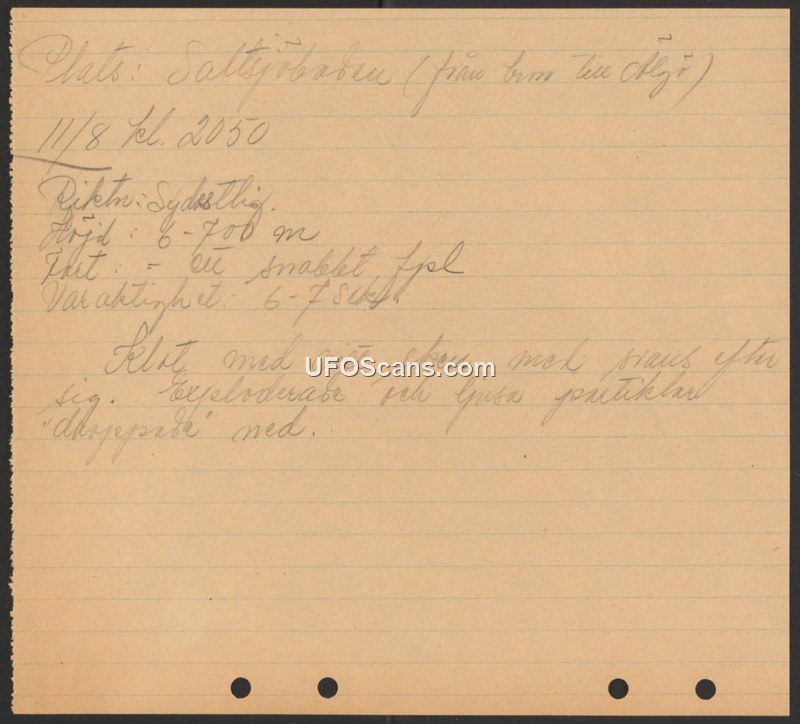 Plats: Saltsjöbaden (från bron till Älgö)
11/8 kl. 2050
Riktn: Sydostlig.
Höjd: 6-700 m
Fart: = ett snabbt fpl
Varaktighet: 6-7 Sek.
Klot med sken, med svans efter
UFOScans.com
sig. Exploderade och ljusa partiklar
"droppade" ned.